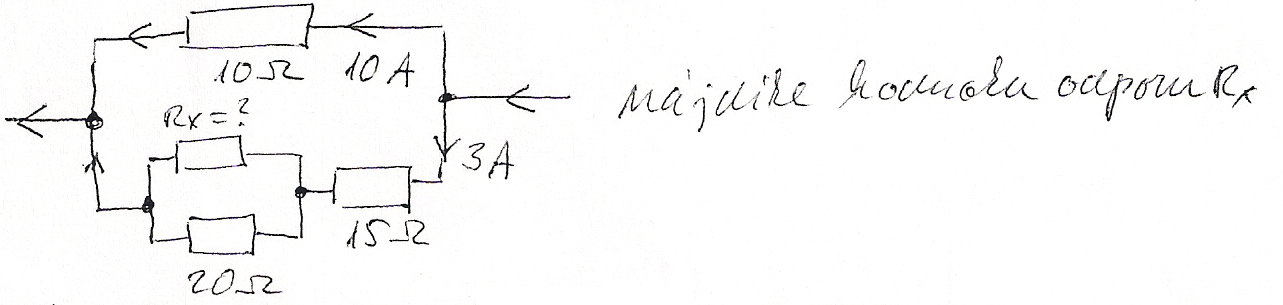 10Ω 10A
Rx=?
3A
15Ω
20Ω
Nájdite hodnotu odporu Rx